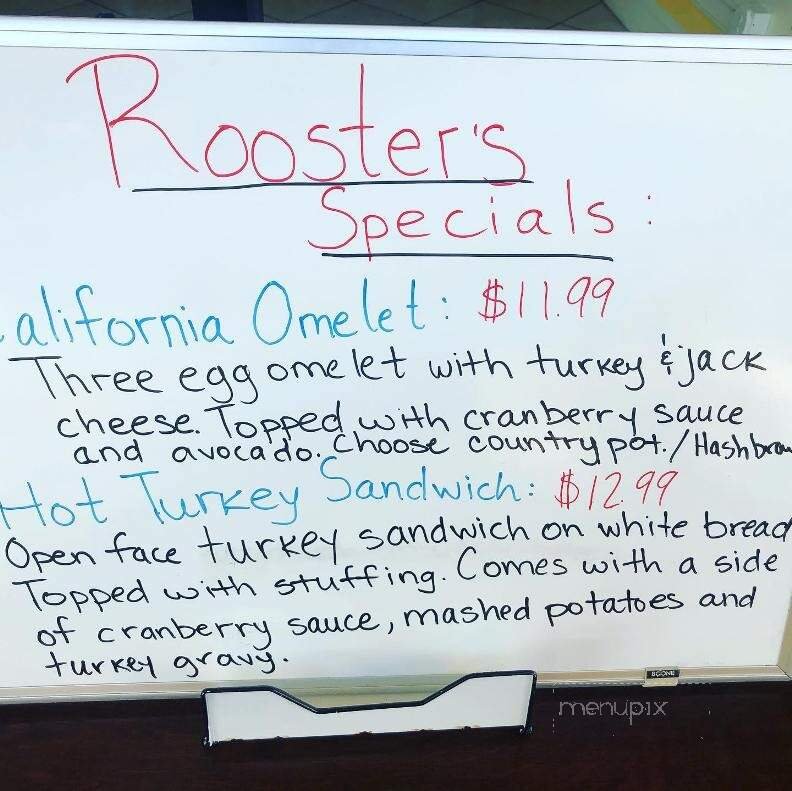 Rooster's
Specials:
California Omelet: $11.99
Three egg omelet with turkey & jack
cheese. Topped with cranberry sauce
and avocado. Choose country pot./Hashbrow
Hot Turkey Sandwich: $12.99
Open face turkey sandwich on white bread
Topped with stuffing. Comes with a side
of cranberry sauce, mashed potatoes and
turkey gravy.
BOONE
menupix